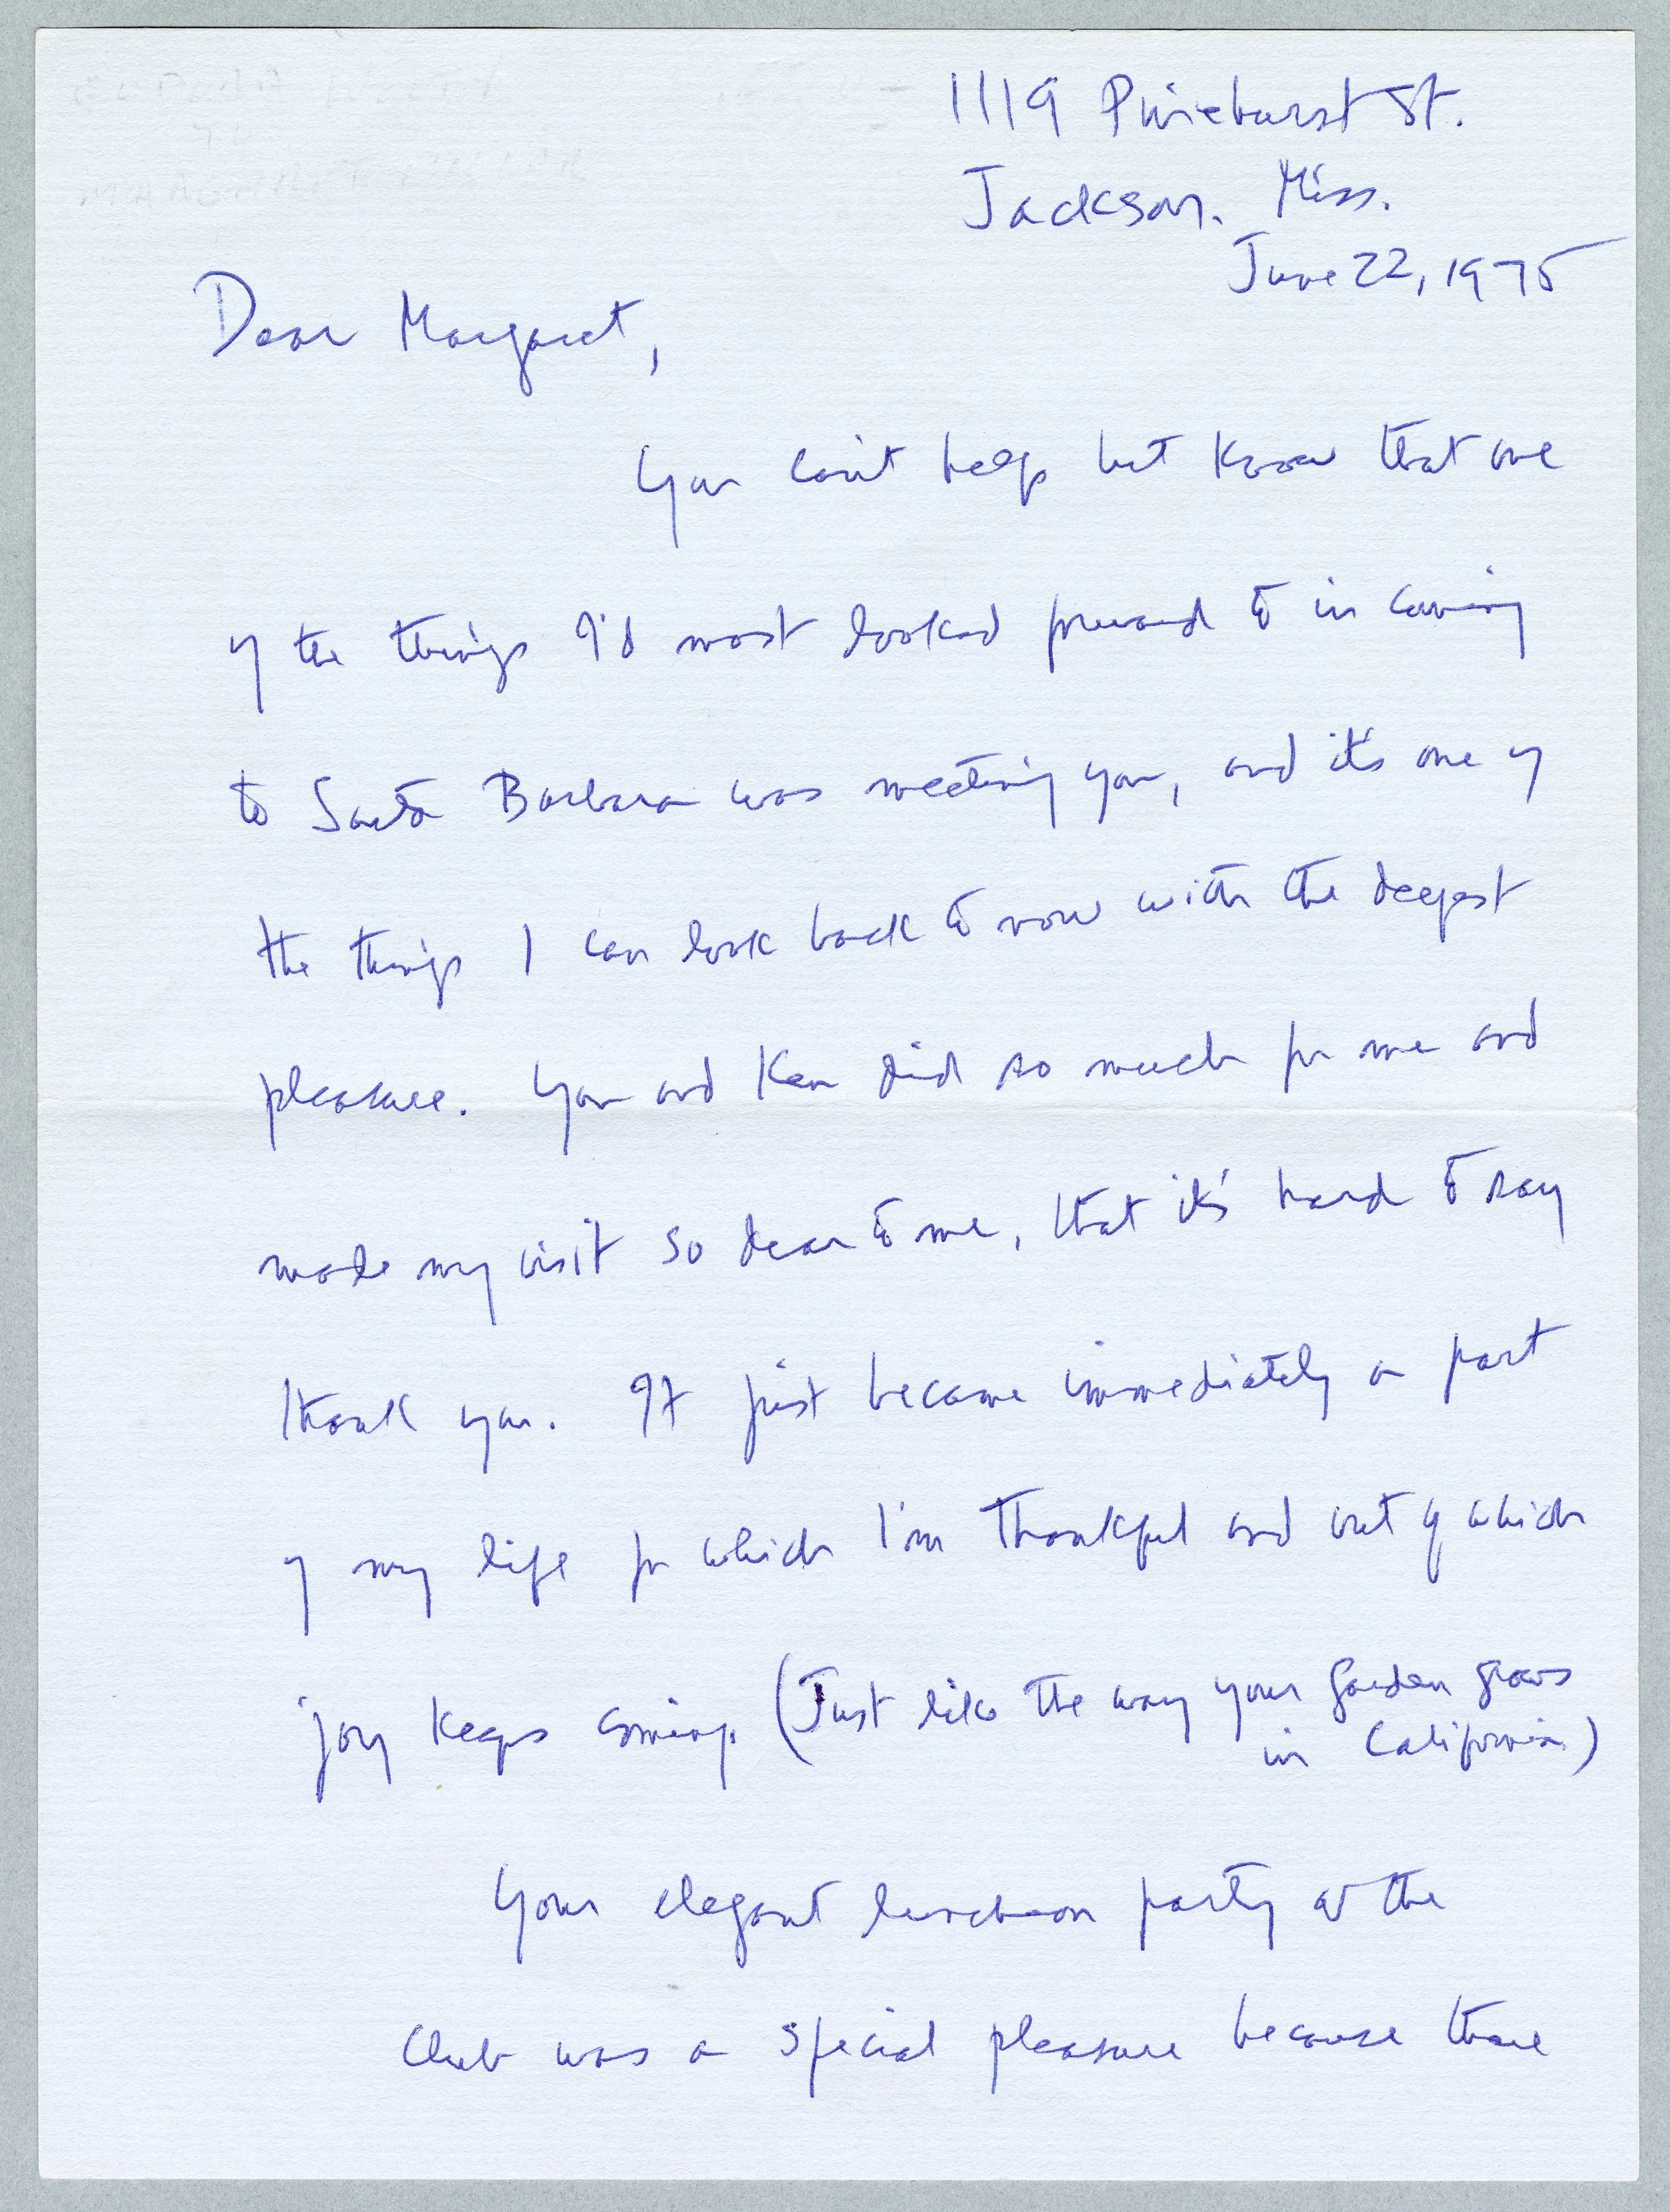 1119 Pinehurst St.
Jackson, Miss.
June 22, 1975
Dear Margaret,
You can't help but know that one
of the things I'd most looked forward to in coming
to Santa Barbara was meeting you, and it's one of
the things I can look back to now with the deepest
pleasure. You and Ken did so much for me and
made my visit so dear to me, that it's hard to say
thank you. It just became immediately a part
of my life for which I'm thankful and out of which
joy keeps coming. (Just like the way your garden grows
in California)
Your elegant luncheon party at the
Club was a special pleasure because there